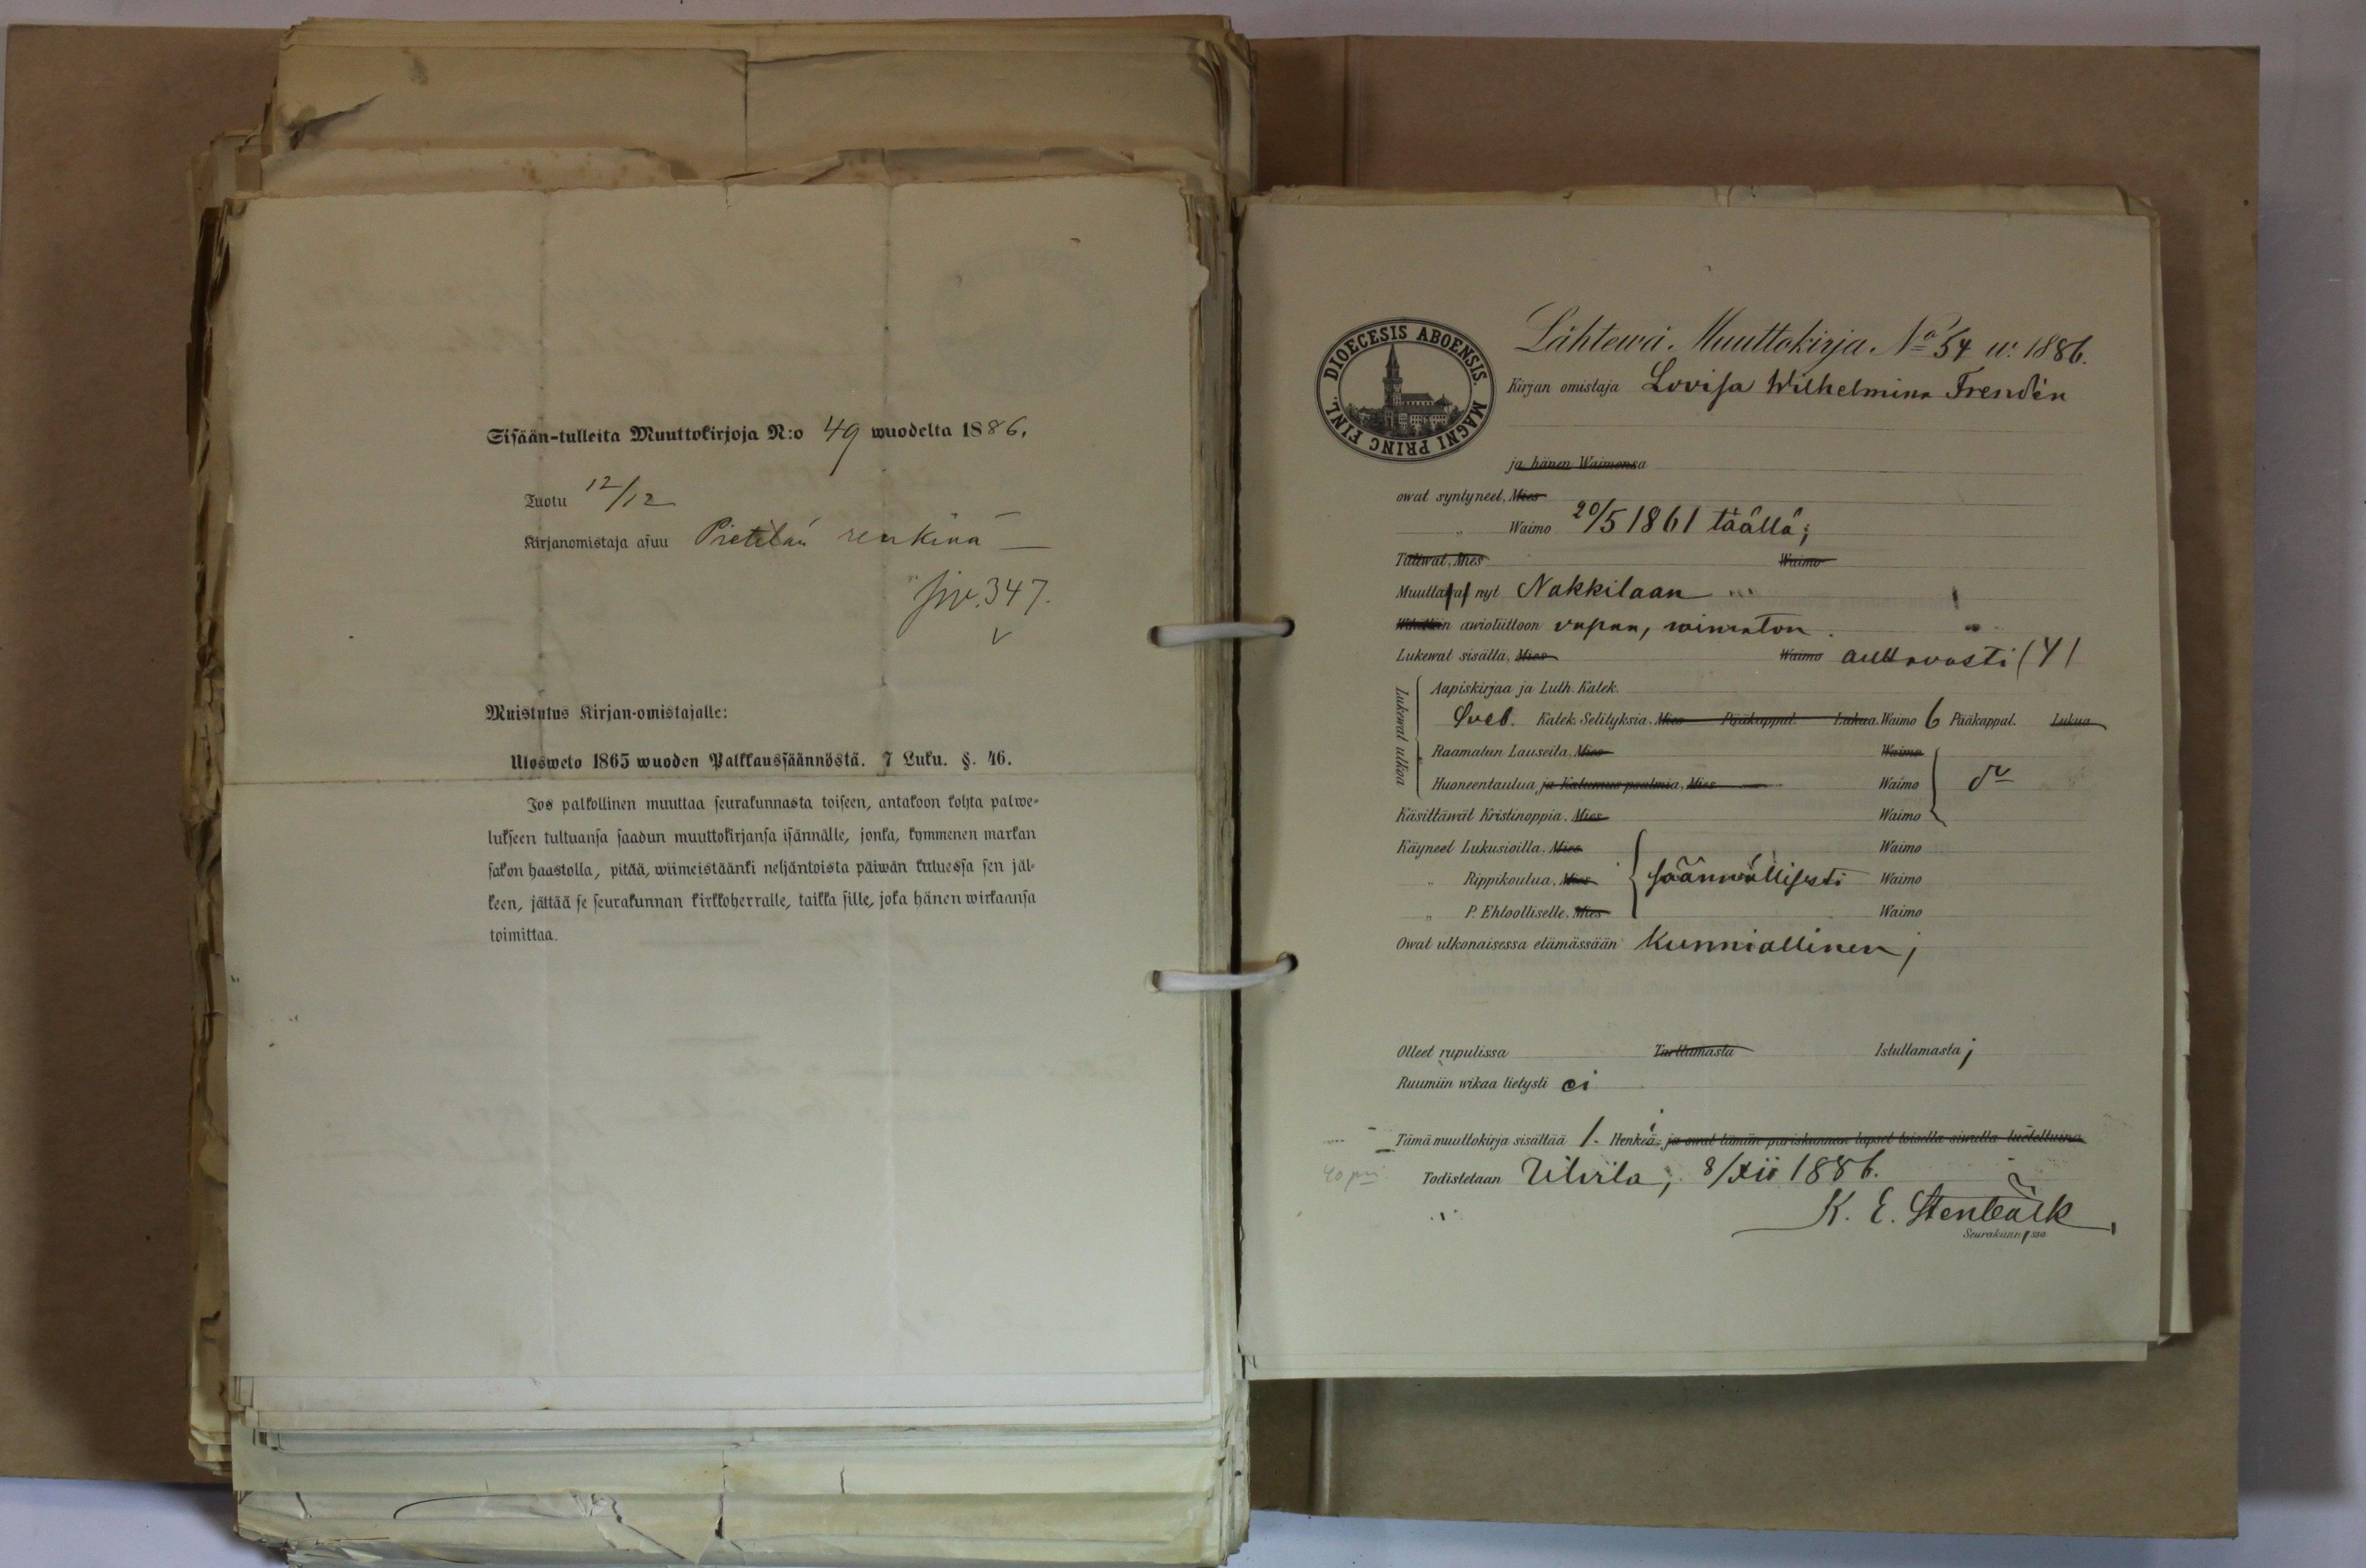 Sisään-tulleita Muuttokirjoja N:o 49 wuodelta 1886.
Tuotu 12/12
Kirjanomistaja asuu Pietilän renkinä —
siv. 347.
Muistutus Kirjan-omistajalle:
Ulosweto 1865 wuoden Palkkaussäännöstä. 7 Luku. §. 46.
Jos palkollinen muuttaa seurakunnasta toiseen, antakoon kohta palwe-
lukseen tultuansa saadun muuttokirjansa isännälle, jonka, kymmenen markan
sakon haastolla, pitää, wiimeistäänki neljäntoista päiwän kuluessa sen jäl-
keen, jättää se seurakunnan kirkkoherralle, taikka sille, joka hänen wirkaansa
toimittaa.
DIOECESIS ABOENSIS. MAGNI PRINC FINL.
Lähtewä Muuttokirja No 54 w. 1886.
Kirjan omistaja Lovisa Wilhelmina Frendén
ja hänen Waimonsa
owat syntyneet, Mies
" Waimo 20/5 1861 täällä;
Tullwat, Mies Waimo
Muuttaa nyt Nakkilaan
awioliittoon vapaa, waimaton.
Lukewat sisältä, Mies Waimo auttavasti (4)
Lukewat ulkoa
Aapiskirjaa ja Luth. Katek.
Sveb. Katek. Selityksiä. Mies Pääkappal. Lukua. Waimo 6 Pääkappal. Lukua
Raamatun Lauseita, Mies Waimo
Huoneentaulua ja Katumus psalmia, Mies Waimo do
Käsittäwät Kristinoppia. Mies Waimo
Käyneet Lukusioilla, Mies Waimo
" Rippikoulua, Mies säännöllisesti Waimo
" P. Ehtoolliselle, Mies Waimo
Owat ulkonaisessa elämässään kunniallinen;
Olleet rupulissa Tarttumasta Istuttamasta;
Ruumiin wikaa tietysti ei
Tämä muuttokirja sisältää 1. Henkeä, ja owat tämän pariskunnan lapset toisella siwulla luetelluina
40 pni
Todistetaan Ulvila; 8/XII 1886.
K. E. Stenbäck
Seurakunnassa